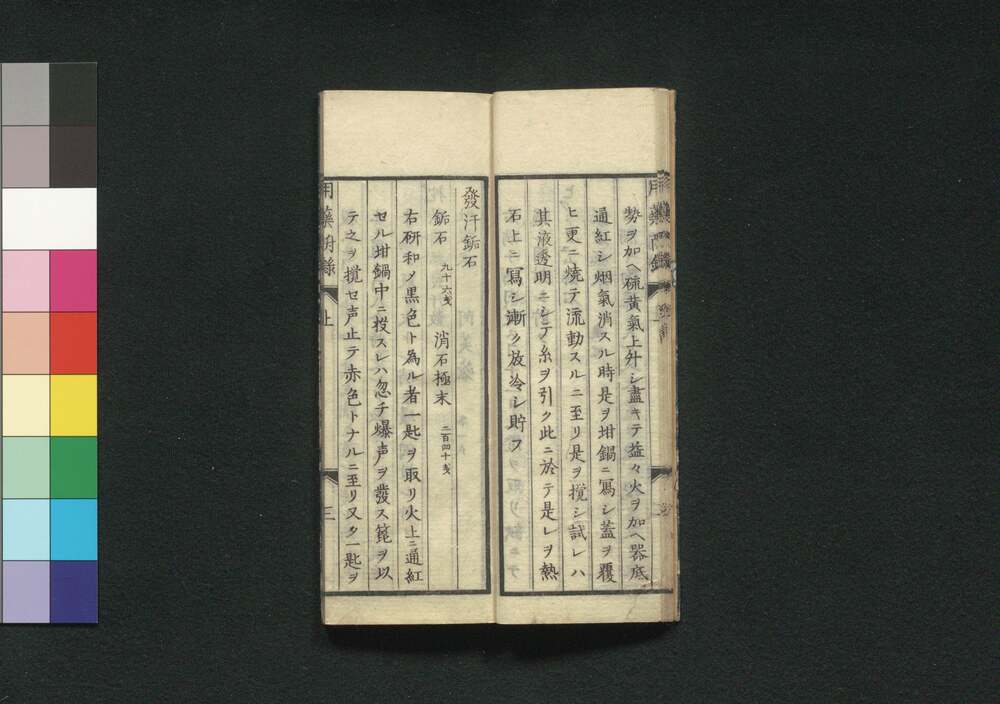 勢ヲ加ヘ硫黄氣上升シ盡キテ益々火ヲ加ヘ器底
通紅シ烟氣消スル時是ヲ坩鍋ニ寫シ蓋ヲ覆
ヒ更ニ焼テ流動スルニ至リ是ヲ攪シ試レハ
其液透明ニシテ糸ヲ引ク此ニ於テ是レヲ熱
石上ニ寫シ漸ク放冷シ貯フ
發汗鉐石
鉐石 九十六戔 消石極末 二百四十戔
右研和メ黒色ト為ル者一匙ヲ取リ火上ニ通紅
セル坩鍋中ニ投スレハ忽チ爆声ヲ發ス箆ヲ以
テ之ヲ攪セ声止テ赤色トナルニ至リ又タ一匙ヲ
用藥
上
三